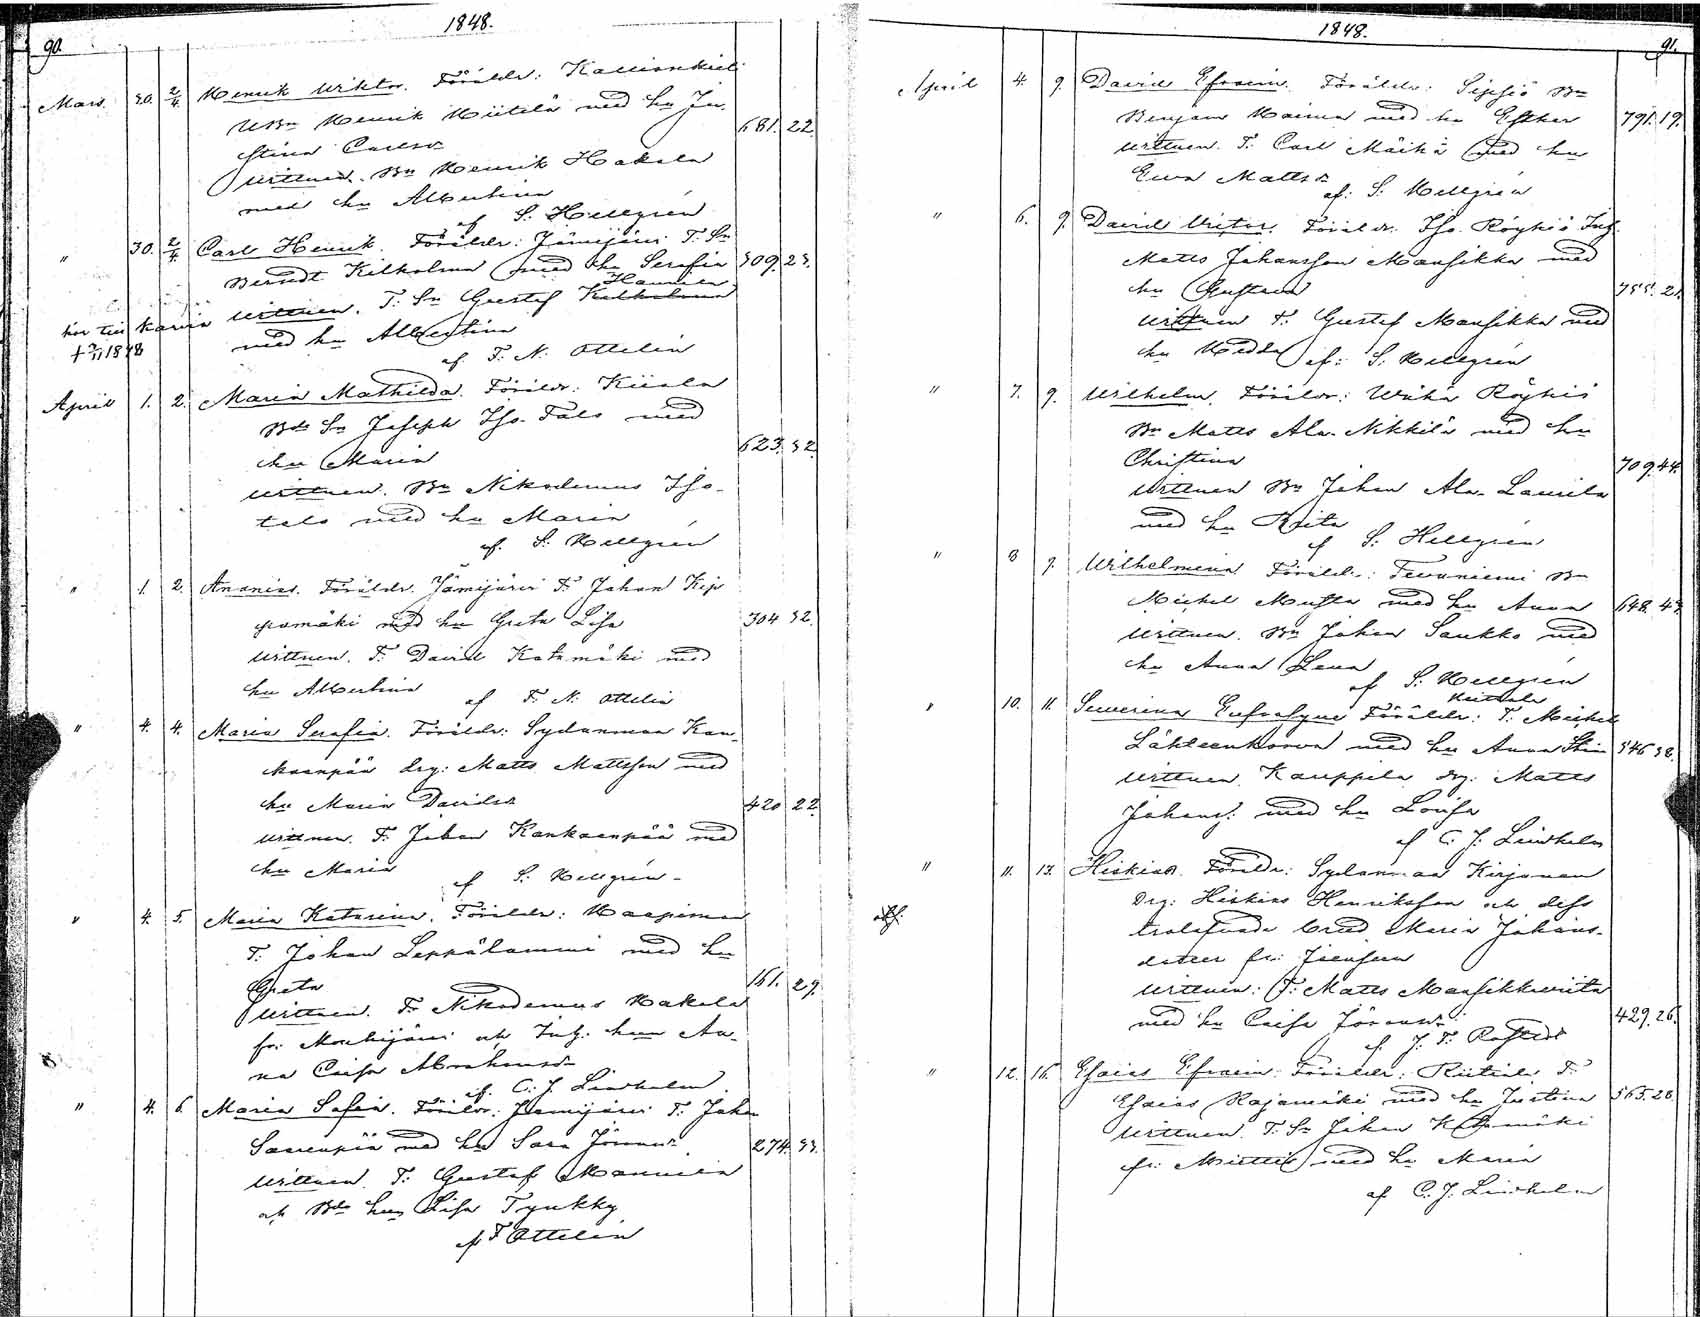 1848.
90.
Mars. 30. 2/4 Henrik Wiktor. Föräldr: Kallionkieli
UBn Henrik Hiitelä med hu Ju-
stina Carlsdr 681. 22
Wittnen. Bn Henrik Hakala
med hu Albertina
af S. Hellgrén
" 30. 2/4 Carl Henrik. Föräldr: Jämijärvi T. Sn
Berndt Kilholma med hu Serafia 309. 23.
Hannula
Wittnen. T. Sn Gustef Kilholma
med hu Albertina
† 1848
af F. N. Ottelin
April 1. 2. Maria Mathilda. Föräldr: Kiiala
Bde Sn Joseph Iso-Talo med
hu Maria 623. 32.
Wittnen. Bn Nikodemus Iso-
talo med hu Maria
af. S. Hellgrén
" 1. 2. Ananias. Föräldr. Jämijärvi T. Johan Kip
pomäki med hu Greta Lisa 304 32.
Wittnen. T. David Katamäki med
hu Albertina
af F. N. Ottelin
" 4. 4. Maria Serafia. Föräldr: Sydänmaa Kan-
kaanpää drg: Matts Mattsson med
hu Maria Davidsdr 420 22.
Wittnen. T. Johan Kankaanpää med
hu Maria
af S. Hellgrén
" 4. 5. Maria Katarina. Föräldr: Haapimaa
T. Johan Leppälammi med hu
Greta 161. 29.
Wittnen. T. Nikodemus Hakala
fr. Mouhijärvi och Inh. hun An-
na Caisa Abrahamsdr
af. C. J. Lindholm
" 4. 6. Maria Sofia. Föräldr: Jämijärvi T. Johan
Saarenpää med hu Sara Jöransdr 274. 33.
Wittnen. T. Gustaf Mannila
och Bde hun Lisa Tynkky
af F Ottelin
1848.
91.
April 4. 9. David Efraim. Föräldr: Sipsiö Bn
Benjam Haima med hu Esther 791. 19.
Wittnen. T. Carl Mäikä med hu
Ewa Mattsdr
af: S. Hellgrén
" 6. 9. David Victor. Föräldr. Iso Röyhiö Inh.
Matts Johansson Mansikka med
hu Gustava 755. 21.
Wittnen T. Gustef Mansikka med
hu Hedda af: S. Hellgrén
" 7. 9. Wilhelm. Föräldr: Wähä Röyhiö
Bn Matts Ala-Nikkilä med hu
Christina 709. 44.
Wittnen Bn Johan Ala-Laurila
med hu Brita
af S. Hellgrén
" 8 9. Wilhelmina. Föräldr: Tevaniemi Bn
Michel Musta med hu Anna 648. 43.
Wittnen. Bn Johan Saukko med
hu Anna Lena
af S. Hellgrén
" 10. 11. Sewerina Eufrosyne Föräldr: T. Michel
Lähteenkorva med hu Anna Stina 546 38.
Wittnen Kauppila drg: Matts
Johans: med hu Lovisa
af C. J. Lindholm
" 11. 13. Hiskias. Föräldr: Sydänmaa Kirjanen
Drg: Hiskias Henriksson och dess
trolofvade brud Maria Johans-
dotter fr:
Wittnen: T. Matts Mansikkaviita
med hu Caisa Jöransdr: 429. 26.
af J. F. Rostedt
" 12. 16. Esaias Efraim. Föräldr: Riitiala T.
Esaias Rajamäki med hu Justina 565. 28.
Wittnen. T. Sn Johan Katamäki
fr: Miettis med hu Maria
af C. J. Lindholm